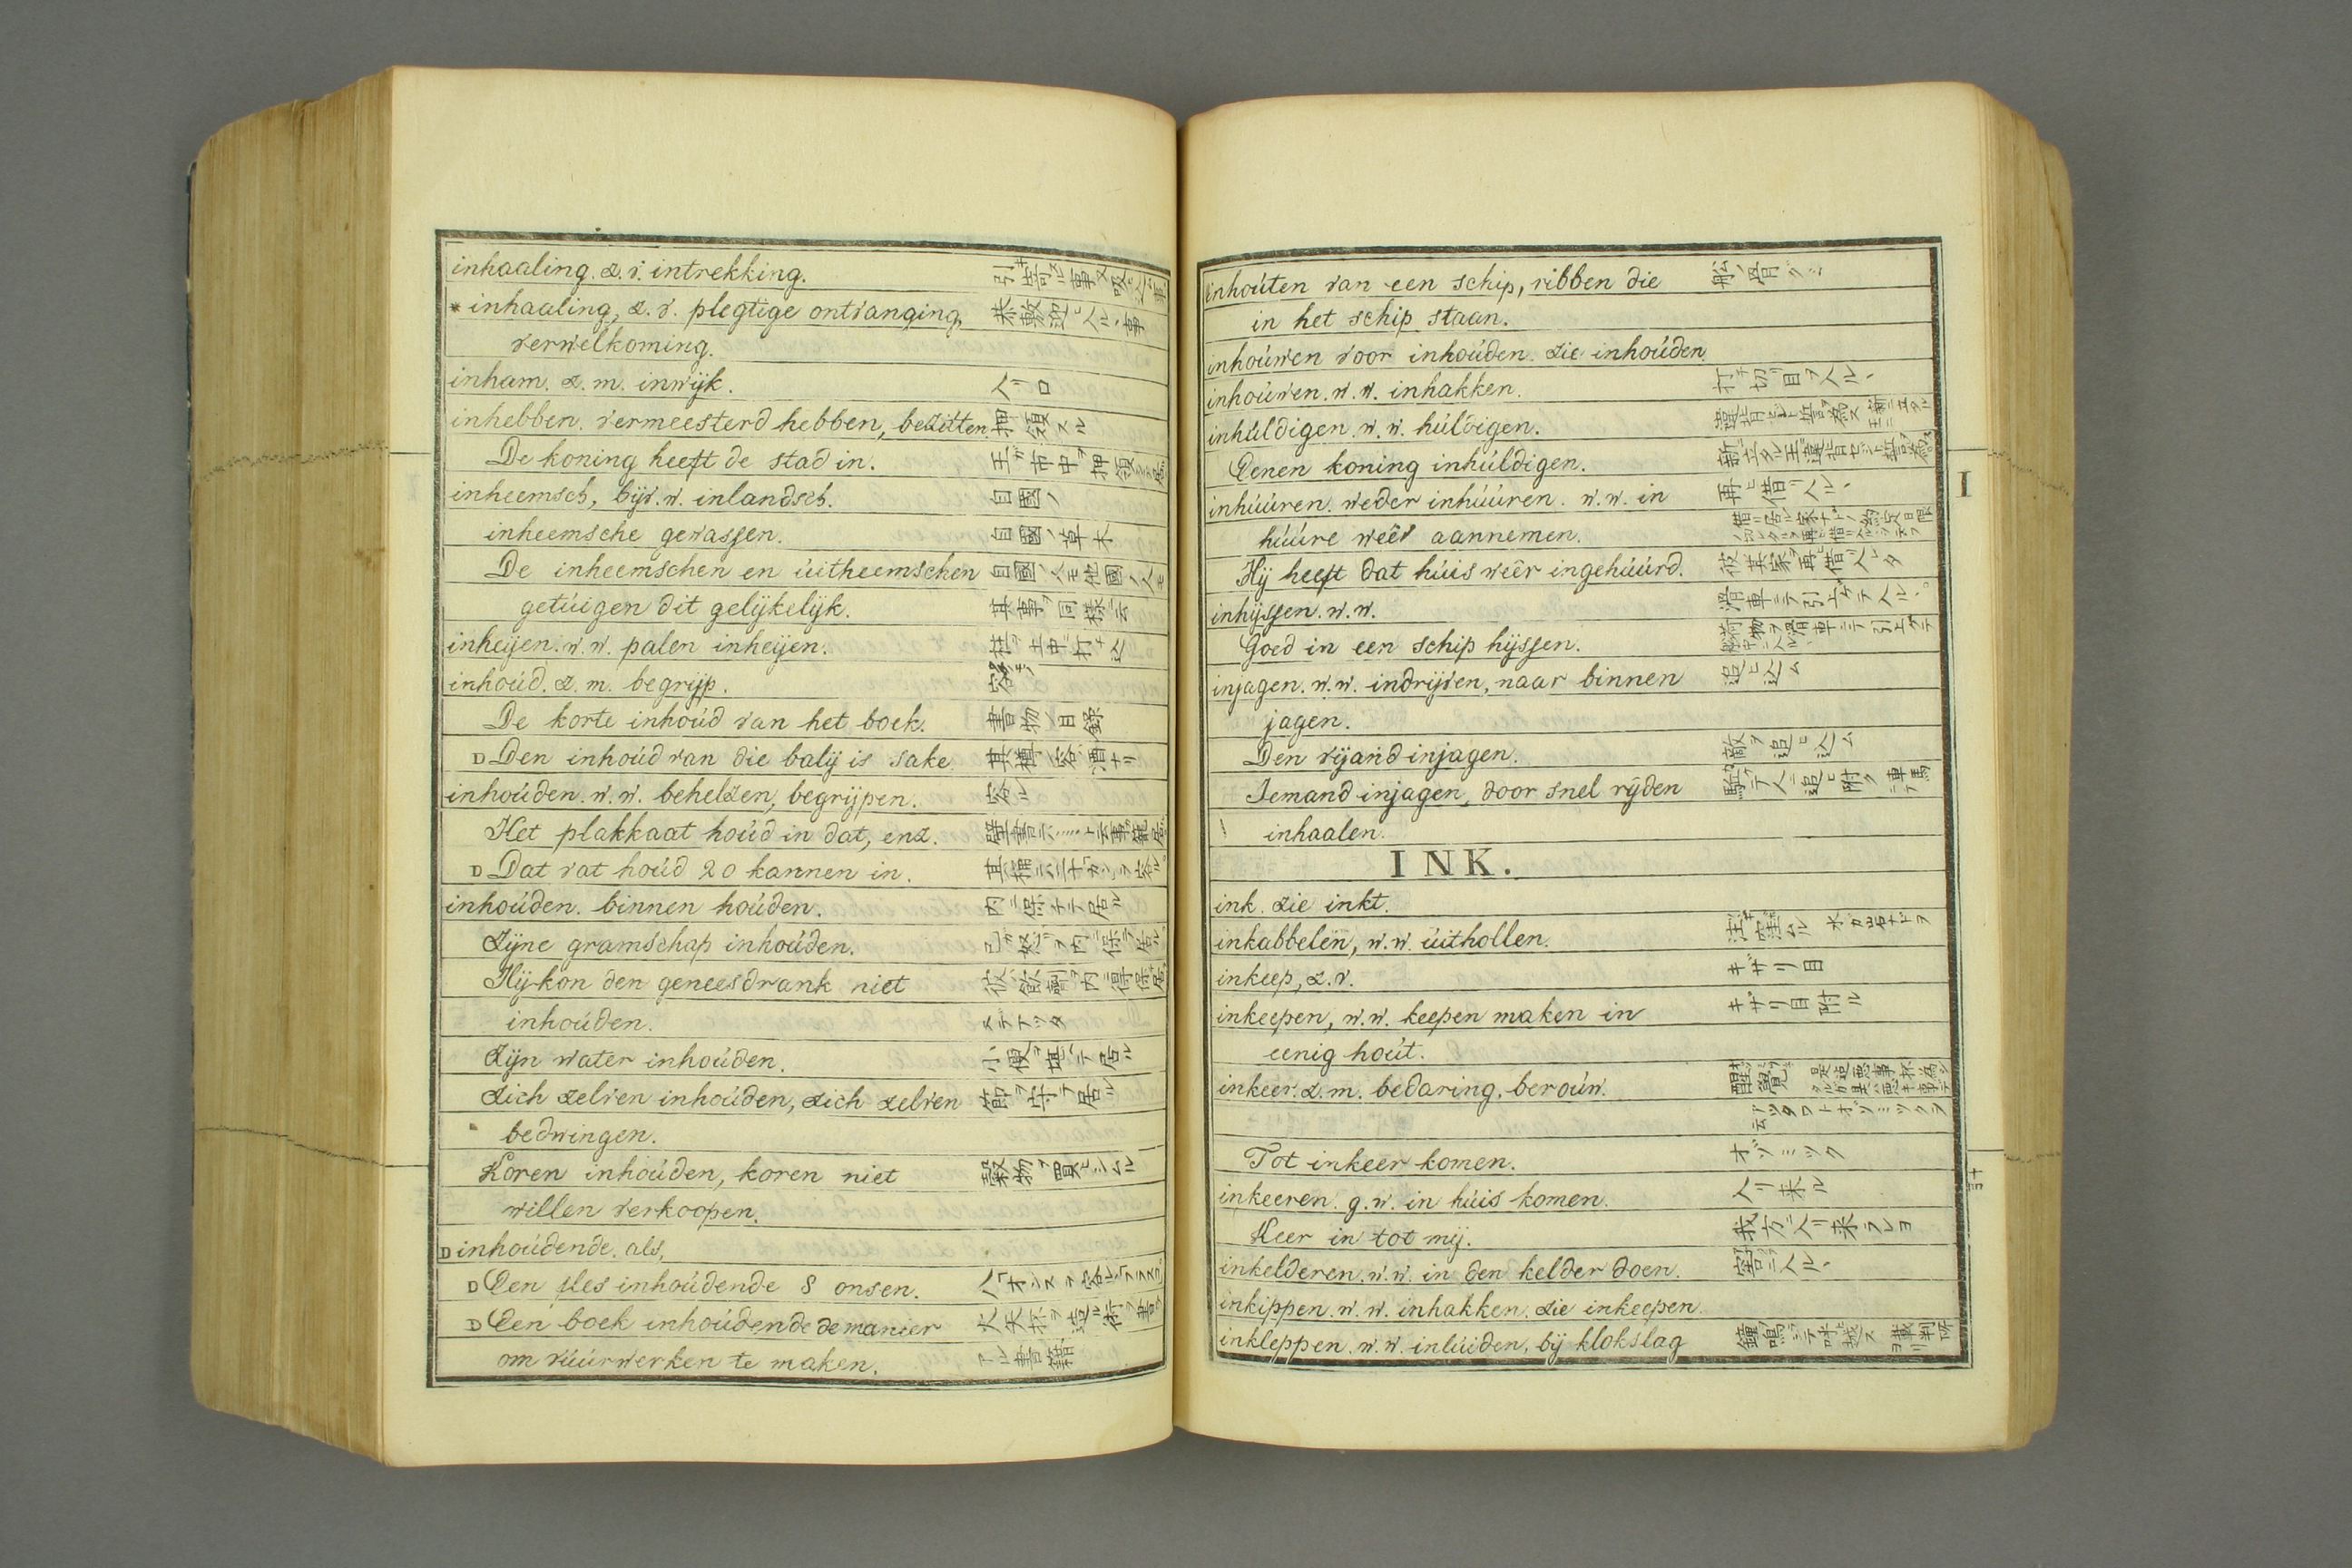 inhaaling. z. v. intrekking. 引キ寄ル事又吸込ム事
* inhaaling, z. v. plegtige ontvanging, 恭敷迎ヒ入ル、事
verwelkoming.
inham. z. m. inwijk. 入リ口
inhebben. vermeesterd hebben, bezitten. 押領スル
De koning heeft de stad in. 王ガ市中ヲ押領シテ居ル
inheemsch, bijv. w. inlandsch. 自國ノ
inheemsche gewassen. 自國ノ草木
De inheemschen en úitheemschen 自國ノ人モ他國ノ人モ
getúigen dit gelijkelijk. 其事ヲ同様ニ云
inheijen. w. w. palen inheijen. 杭ヲ土中ニ打チ込
inhoúd. z. m. begrijp. 容
De korte inhoúd van het boek. 書物ノ目録
D Den inhoúd van die balij is sake 其樽ノ容ハ酒ナリ
inhoúden. w. w. behelzen, begrijpen. 容ル
Het plakkaat hoúd in dat, enz. 壁書ニ
D Dat vat hoúd 20 kannen in. 其桶ニハ二十カンヲ容ル
inhoúden. binnen hoúden. 内ニ保チテ居ル
Zijne gramschap inhoúden. 己ガ怒リヲ内ニ保テ居ル
Hij kon den geneesdrank niet 彼ハ飲劑ヲ内ニ得保テ居
inhoúden. ヘデアツタ
Zijn water inhoúden. 小便ヲ堪ヘテ居ル
Zich zelven inhoúden, zich zelven 節ヲ守テ居ル
bedwingen.
Koren inhoúden, koren niet 穀物ヲ買ヒシムル
willen verkoopen.
D inhoúdende. als,
D Een fles inhoúdende 8 onsen. 八オンスヲ容ル、フラスコ
D Een boek inhoúdende de manier 火矢杯ヲ造ル術ヲ書テ
om vúúrwerken te maken. アル書籍
inhoúten van een schip, ribben die 舩ノ骨
in het schip staan.
inhoúwen voor inhoúden. zie inhoúden
inhoúwen. w. w. inhakken. 打チ切リ目ヲ入ル、
inhúldigen. w. w. húldigen.
Eenen koning inhúldigen. 新ニ立タル王ニ違背セジト誓ヲ為ス
inhúúren. weder inhúúren. w. w. in 再ヒ借リ入ル、
húúre weêr aannemen.
Hij heeft dat húis weêr ingehúúrd. 彼某家ヲ再ヒ借リ入レタ
inhijssen. w. w. 滑車ニテ引上ケテ入ル、
Goed in een schip hijssen. 荷物ヲ滑車ニテ引上ケテ
injagen. w. w. indrijven, naar binnen 追ヒ込ム
jagen.
Den vijand injagen. 敵ヲ追ヒ込ム
Iemand injagen, door snel rijden 馳テ人ニ追ヒ附ク 車馬ニテ
inhaalen.
INK.
ink. zie inkt.
inkabbelen, w. w. úithollen. 水ガ岩ナドヲ
inkeep, z. v. キザリ目
inkeepen, w. w. keepen maken in キザリ目附ル
eenig hoút.
inkeer. z. m. bedaring, beroúw. 醒覺
Tot inkeer komen. オゾミツク
inkeeren. g. w. in húis komen. 入リ来ル
Keer in tot mij. 我方ニ入リ来ラレヨ
inkelderen. w. w. in den kelder doen. 窖ニ入ル、
inkippen. w. w. inhakken. zie inkeepen
inkleppen. w. w. inlúiden, bij klokslag 鐘ヲ鳴シテ呼越ス
I